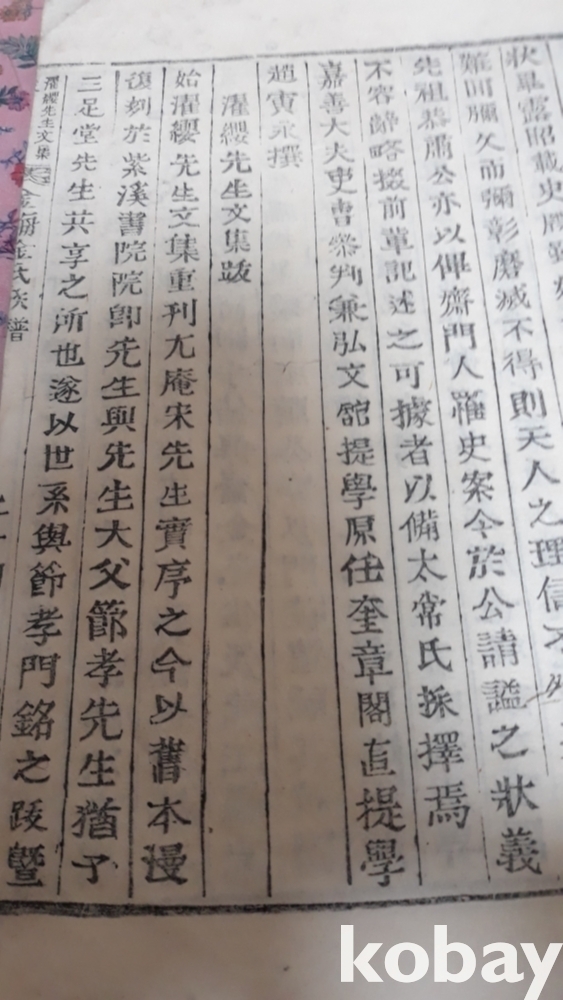 狀暴露昭載史牒
難誣彌久而彌彰磨滅不得則天人之理信不
先祖恭肅公亦以俾齋門人罹史案今於公請謚之狀義
不容辭略掇前輩記述之可據者以備太常氏採擇焉
嘉善大夫吏曹參判兼弘文館提學原任奎章閣直提學
趙寅永撰
濯纓先生文集跋
始濯纓先生文集重刊尤庵宋先生實序之今以舊本漫
復刻於紫溪書院院卽先生與先生大父節孝先生猶子
三足堂先生共享之所也遂以世系與節孝門銘之跋暨
濯纓先生文集 金海金氏族譜
kobay